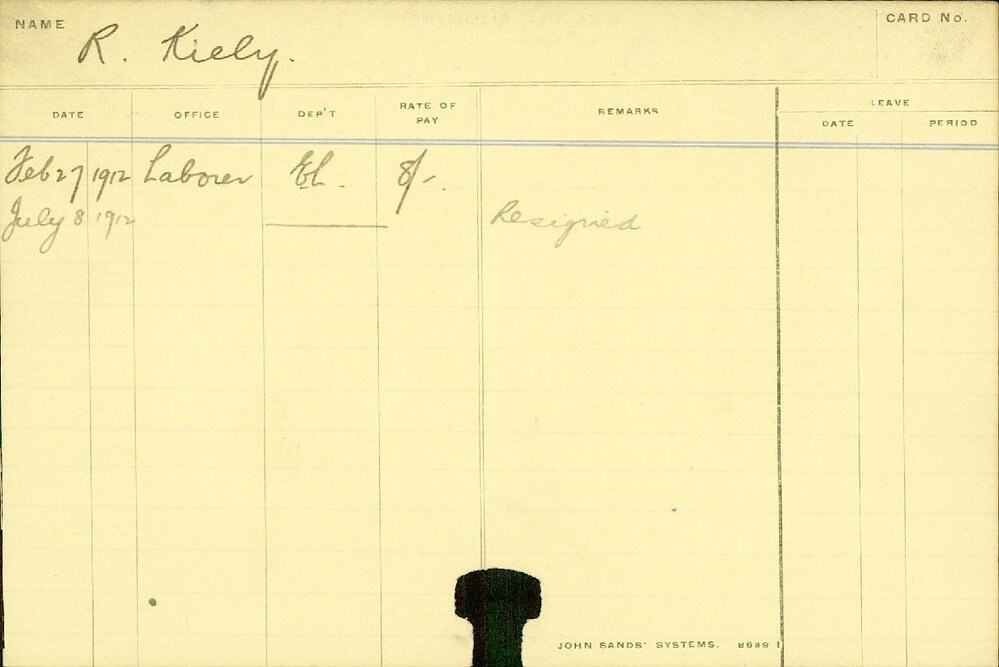 NAME R. Kiely. CARD No.
DATE OFFICE DEP'T RATE OF PAY REMARKS LEAVE
DATE PERIOD
Feb 27 1912 Laborer EL. 8/-.
July 8 1912 Resigned
JOHN SANDS' SYSTEMS. 8689